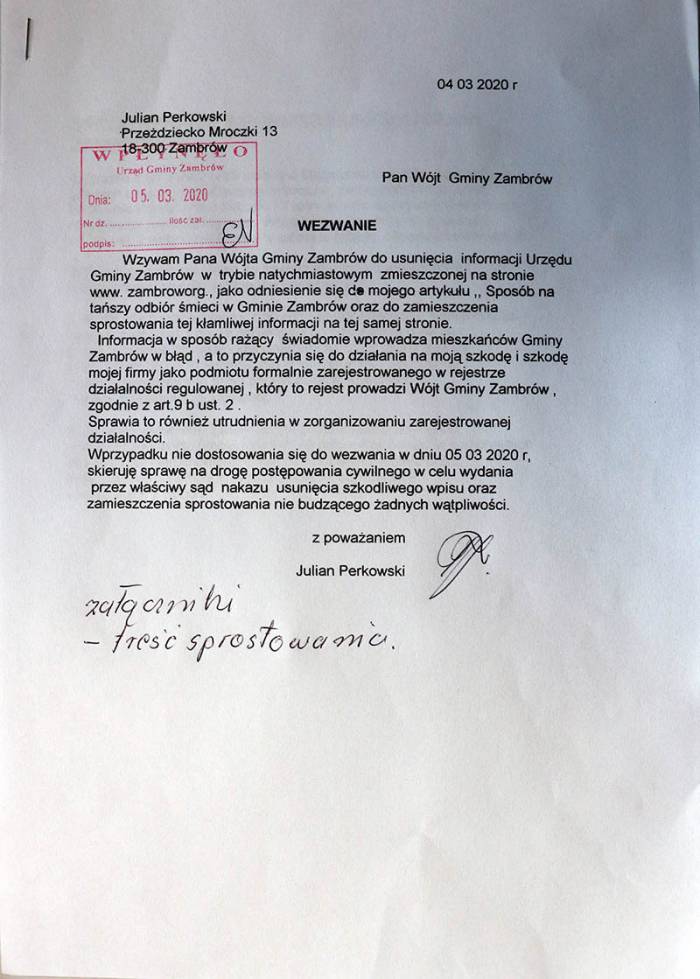 04 03 2020 r
Julian Perkowski
Przeździecko Mroczki 13
18-300 Zambrów
WPŁYNĘŁO
Urząd Gminy Zambrów
Dnia: 05. 03. 2020
Nr dz. .................... ilość zał. ..............
podpis: ..............................
EN
Pan Wójt Gminy Zambrów
WEZWANIE
Wzywam Pana Wójta Gminy Zambrów do usunięcia informacji Urzędu
Gminy Zambrów w trybie natychmiastowym zmieszczonej na stronie
www. zambroworg., jako odniesienie się do mojego artykułu ,, Sposób na
tańszy odbiór śmieci w Gminie Zambrów oraz do zamieszczenia
sprostowania tej kłamliwej informacji na tej samej stronie.
Informacja w sposób rażący świadomie wprowadza mieszkańców Gminy
Zambrów w błąd , a to przyczynia się do działania na moją szkodę i szkodę
mojej firmy jako podmiotu formalnie zarejestrowanego w rejestrze
działalności regulowanej , który to rejest prowadzi Wójt Gminy Zambrów ,
zgodnie z art.9 b ust. 2 .
Sprawia to również utrudnienia w zorganizowaniu zarejestrowanej
działalności.
Wprzypadku nie dostosowania się do wezwania w dniu 05 03 2020 r,
skieruję sprawę na drogę postępowania cywilnego w celu wydania
przez właściwy sąd nakazu usunięcia szkodliwego wpisu oraz
zamieszczenia sprostowania nie budzącego żadnych wątpliwości.
z poważaniem
Julian Perkowski
załączniki
– treść sprostowania.